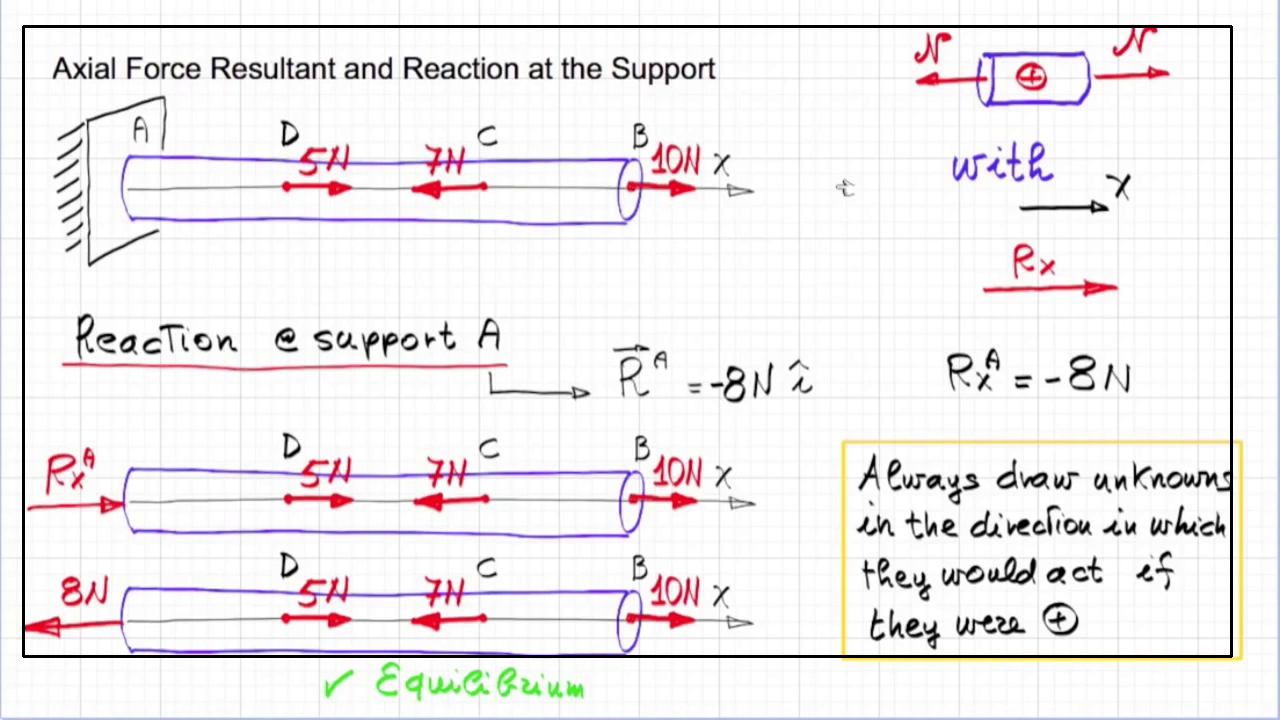 Axial Force Resultant and Reaction at the Support
N N
+
A D 5N 7N C B 10N X
with
X
Rx
Reaction @ support A
R^A = -8N î
Rx^A = -8N
Rx^A D 5N 7N C B 10N X
8N D 5N 7N C B 10N X
Always draw unknowns
in the direction in which
they would act if
they were +
✓ Equilibrium